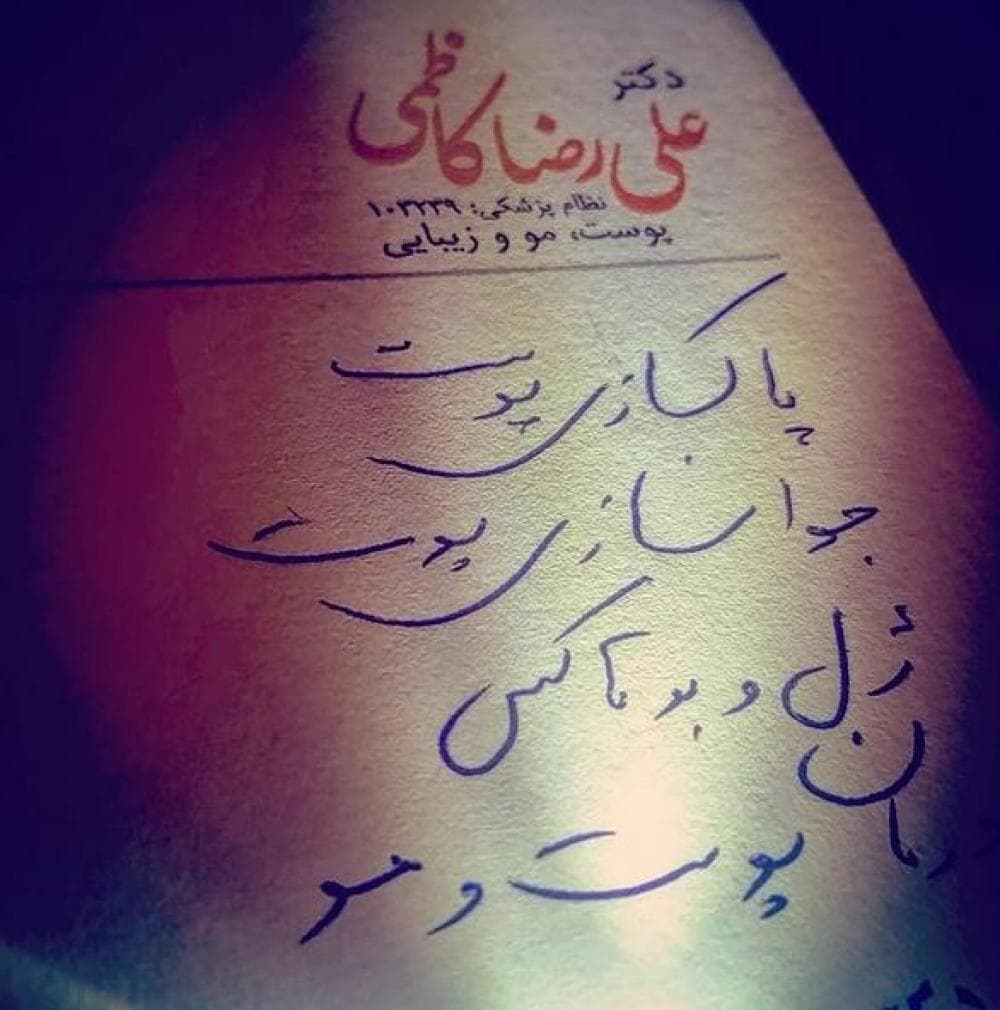 دکتر
علی رضا کاظمی
نظام پزشکی: ۱۰۳۲۳۹
پوست، مو و زیبایی
پاکسازی پوست
جوانسازی پوست
ژل و بوتاکس
درمان
پوست و مو